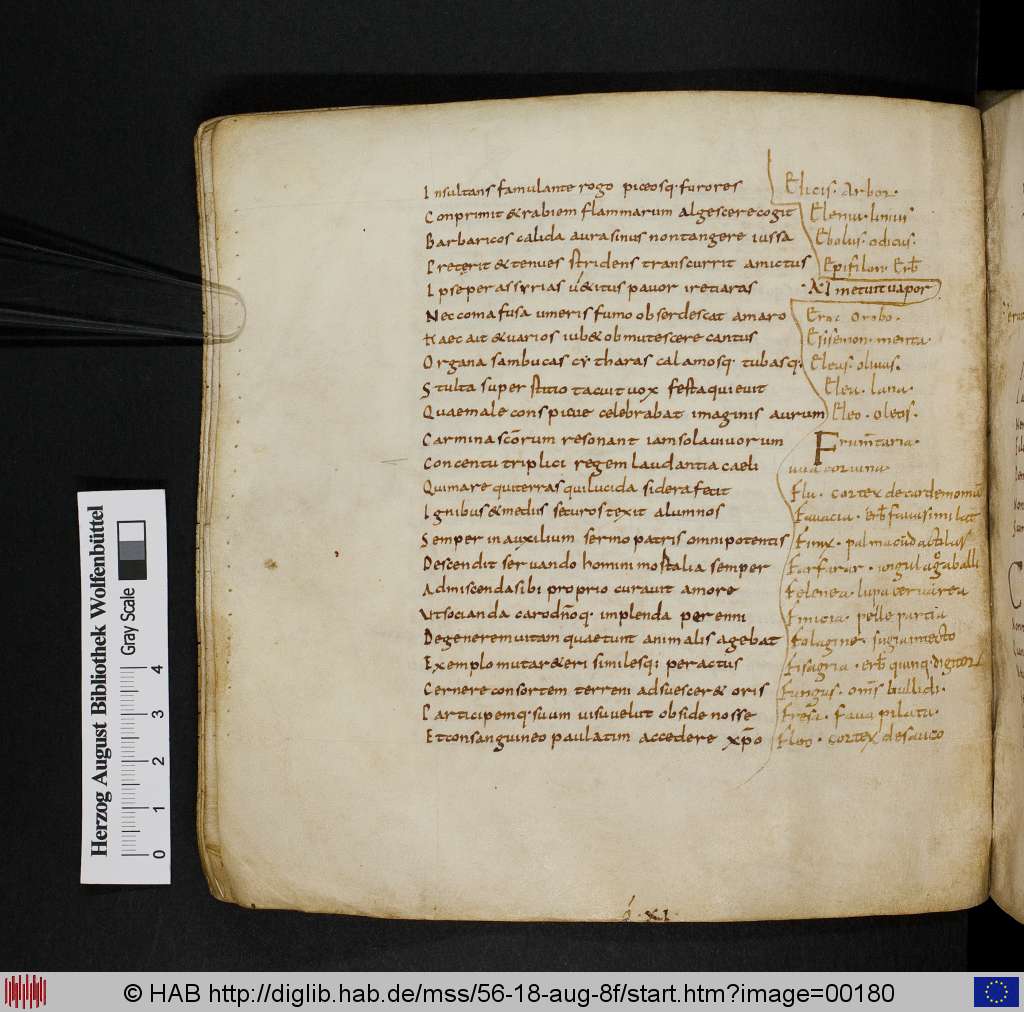 Insultans famulante rogo piceosq· furores
Conprimit & rabiem flammarum algescere cogit
Barbaricos calida aura sinus non tangere iussa
Preterit & tenues stridens transcurrit amictus
Ipse per assyrias u&itus pauor ire tiaras
Nec coma fusa umeris fumo obserdescat amaro
Haec ait & uarios iub& obmutescere cantus
Organa sambucas cytharas calamosq· tubasq·
Stulta superstitio tacuit uox festa quieuit
Quae male conspicuae celebrabat imaginis aurum
Carmina scōrum resonant iam sola uiuorum
Concentu triplici regem laudantia caeli
Qui mare qui terras qui lucida sidera fecit
Ignibus & medus securos texit alumnos
Semper in auxilium sermo patris omnipotentis
Descendit seruando homini mostalia semper
Admiscenda sibi proprio curauit amore
Ut socianda caro dn̄oq· implenda perenni
Degenerem uitam quae tunt animalis agebat
Exemplo mutar& eri similesqi per actus
Cernere consortem terreni adsuescer& oris
Participemq· suum uisu uelut obside nosse
Et consanguineo paulatim accedere xp̄o
Elicis· Arbor·
Elemu· linui
Ebolus· odicus·
Epifilon· Erb̄
·A·I metuit uapor
Eroc Orobo·
Esisenon· menta·
Eleus· oliuas·
Elea· lana·
Eleo· oletis·
Frum̄taria·
uua coruina·
Flu· cortex de cardemomū
Fauacia· erb̄ faue similat
Finix· palma cū dactilus
Farfarar· ungula gaballi
Felenea· lupa ceruarea
Finicia· pelle partia
Folagine·
Fisagria· erb̄ quinq· digitor
Fungus· om̄s bullidi·
Fresa· faua pilata·
Fleo· cortex de sauco
q· XI
Herzog August Bibliothek Wolfenbüttel
Gray Scale
0 1 2 3 4
© HAB http://diglib.hab.de/mss/56-18-aug-8f/start.htm?image=00180